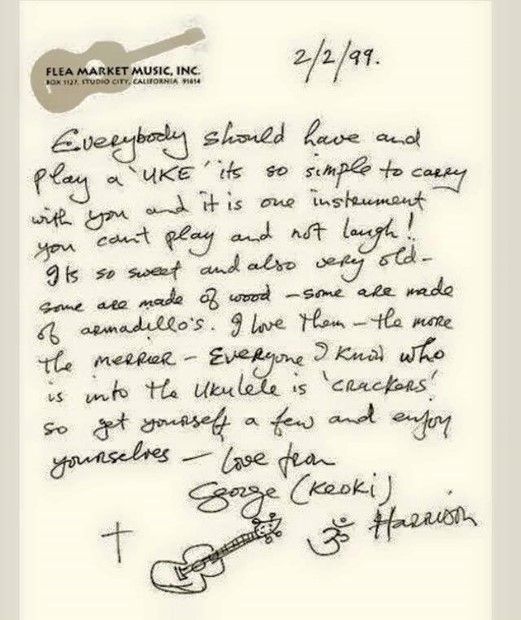 FLEA MARKET MUSIC, INC.
BOX 1127, STUDIO CITY, CALIFORNIA 91614
2/2/99.
Everybody should have and
play a 'UKE' its so simple to carry
with you and it is one instrument
you cant play and not laugh!
Its so sweet and also very old -
some are made of wood - some are made
of armadillo's. I love them - the more
the merrier - Everyone I know who
is into the ukulele is 'crackers'
so get yourself a few and enjoy
yourselves - Love from
George (Keoki)
ॐ Harrison